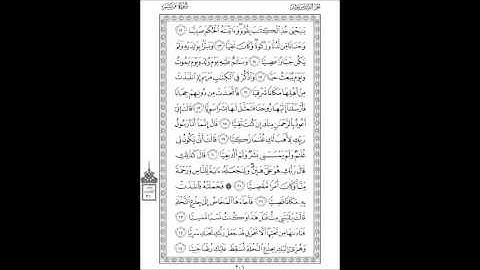 سُورَةُ مَرْيَمَ
يَٰيَحْيَىٰ خُذِ ٱلْكِتَٰبَ بِقُوَّةٍ وَءَاتَيْنَٰهُ ٱلْحُكْمَ صَبِيًّا ١٢
وَحَنَانًا مِّن لَّدُنَّا وَزَكَوٰةً وَكَانَ تَقِيًّا ١٣ وَبَرًّۢا بِوَٰلِدَيْهِ وَلَمْ
يَكُن جَبَّارًا عَصِيًّا ١٤ وَسَلَٰمٌ عَلَيْهِ يَوْمَ وُلِدَ وَيَوْمَ يَمُوتُ
وَيَوْمَ يُبْعَثُ حَيًّا ١٥ وَٱذْكُرْ فِى ٱلْكِتَٰبِ مَرْيَمَ إِذِ ٱنتَبَذَتْ
مِنْ أَهْلِهَا مَكَانًا شَرْقِيًّا ١٦ فَٱتَّخَذَتْ مِن دُونِهِمْ حِجَابًا
فَأَرْسَلْنَآ إِلَيْهَا رُوحَنَا فَتَمَثَّلَ لَهَا بَشَرًا سَوِيًّا ١٧ قَالَتْ إِنِّىٓ
أَعُوذُ بِٱلرَّحْمَٰنِ مِنكَ إِن كُنتَ تَقِيًّا ١٨ قَالَ إِنَّمَآ أَنَا۠ رَسُولُ
رَبِّكِ لِأَهَبَ لَكِ غُلَٰمًا زَكِيًّا ١٩ قَالَتْ أَنَّىٰ يَكُونُ لِى
غُلَٰمٌ وَلَمْ يَمْسَسْنِى بَشَرٌ وَلَمْ أَكُ بَغِيًّا ٢٠ قَالَ كَذَٰلِكِ
قَالَ رَبُّكِ هُوَ عَلَىَّ هَيِّنٌ وَلِنَجْعَلَهُۥٓ ءَايَةً لِّلنَّاسِ وَرَحْمَةً
مِّنَّا وَكَانَ أَمْرًا مَّقْضِيًّا ٢١ ۞ فَحَمَلَتْهُ فَٱنتَبَذَتْ
بِهِۦ مَكَانًا قَصِيًّا ٢٢ فَأَجَآءَهَا ٱلْمَخَاضُ إِلَىٰ جِذْعِ ٱلنَّخْلَةِ
قَالَتْ يَٰلَيْتَنِى مِتُّ قَبْلَ هَٰذَا وَكُنتُ نَسْيًا مَّنسِيًّا ٢٣
فَنَادَىٰهَا مِن تَحْتِهَآ أَلَّا تَحْزَنِى قَدْ جَعَلَ رَبُّكِ تَحْتَكِ سَرِيًّا ٢٤
وَهُزِّىٓ إِلَيْكِ بِجِذْعِ ٱلنَّخْلَةِ تُسَٰقِطْ عَلَيْكِ رُطَبًا جَنِيًّا ٢٥
٣٠٦